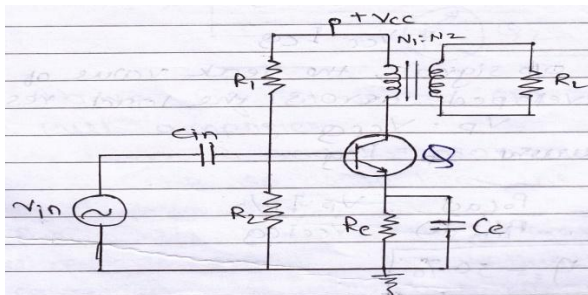 +Vcc
N1:N2
R1
RL
Cin
Q
Vin
R2
Re
Ce